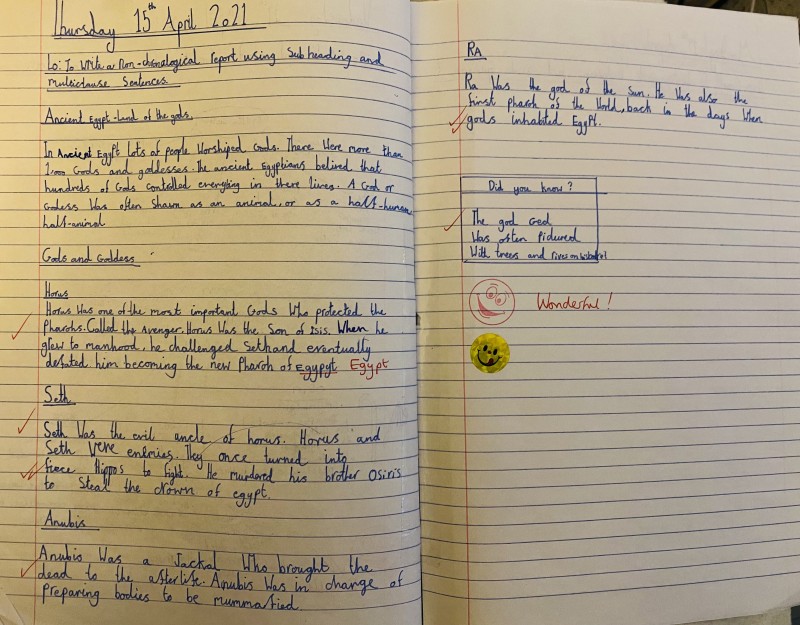 Thursday 15th April 2021
Lo: To write a Non-chronological report using Subheading and
Multiclause Sentences
Ancient Egypt-Land of the gods.
In Ancient Egypt Lots of people Worshiped Gods. There Were more than
1,000 Gods and goddesses. The ancient Egyptians belived that
hundreds of Gods contolled everyting in there lives. A God or
Godess Was often Shawn as an animal, or as a half-human
half-animal
Gods and Goddess
Horus
Horus Was one of the most important Gods Who protected the
Pharohs. Called the Avenger. Horus Was the Son of Isis. When he
grew to manhood, he challenged Seth and eventually
defated him becoming the new Pharoh of Egypyt Egypt
Seth
Seth Was the evil uncle of horus. Horus and
Seth Were enimies. They once turned into
fiece Hippos to fight. He murdered his brother Osiris
to Steal the Crown of egypt.
Anubis
Anubis Was a Jackal Who brought the
dead to the afterlife. Anubis Was in charge of
preparing bodies to be mummafied
RA
Ra Was the god of the Sun. He Was also the
first pharoh of the World, back in the days When
gods inhabited Egypt.
Did you know?
The god Geb
Was often Pictured
With trees and rives on his
Wonderful!